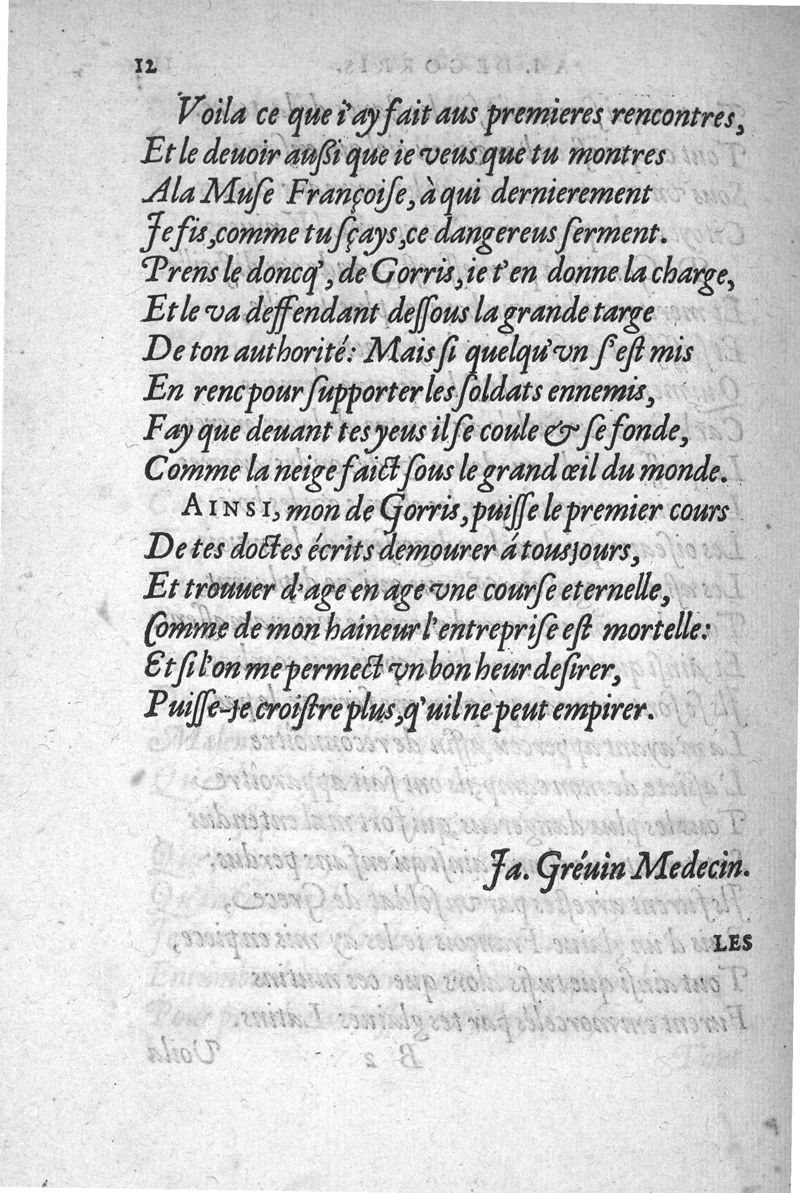 12
Voila ce que i'ay fait aus premieres rencontres,
Et le deuoir außi que ie veus que tu montres
A la Muſe Françoiſe, à qui dernierement
Je fis, comme tu ſçays, ce dangereus ſerment.
Prens le doncq', de Gorris, ie t'en donne la charge,
Et le va deffendant deſſous la grande targe
De ton authorité: Mais ſi quelqu'vn ſ'eſt mis
En renc pour ſupporter les ſoldats ennemis,
Fay que deuant tes yeus il ſe coule & ſe fonde,
Comme la neige faict ſous le grand œil du monde.
AINSI, mon de Gorris, puiſſe le premier cours
De tes doctes écrits demourer á tousjours,
Et trouuer d'age en age vne courſe eternelle,
Comme de mon haineur l'entrepriſe eſt mortelle:
Et ſi l'on me permect vn bon heur deſirer,
Puiſſe-je croiſtre plus, q'uil ne peut empirer.
Ja. Gréuin Medecin.
LES